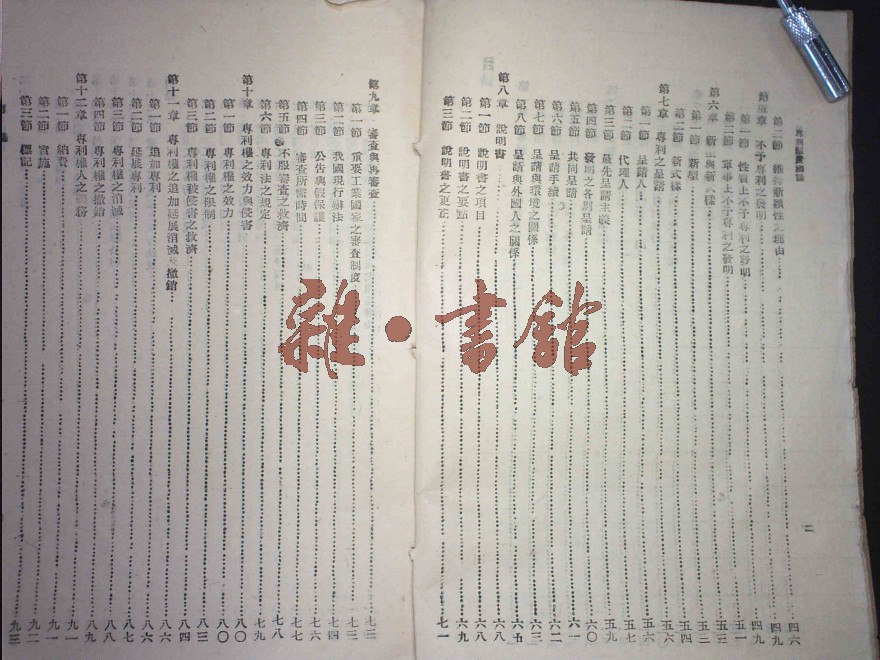 第二節 維持新穎性之理由 四六
第五章 不予專利之發明 四九
第一節 性質上不予專利之發明 四九
第二節 軍事上不予專利之發明 五一
第六章 新型與新式樣 五三
第一節 新型 五三
第二節 新式樣 五四
第七章 專利之呈請 五五
第一節 呈請人 五五
第二節 代理人 五七
第三節 最先呈請主義 五九
第四節 發明之各別呈請 六〇
第五節 共同呈請 六一
第六節 呈請手續 六二
第七節 呈請與環境之關係 六三
第八節 呈請與外國人之關係 六五
第八章 說明書 六八
第一節 說明書之項目 六八
第二節 說明書之要點 六九
第三節 說明書之更正 七一
第九章 審查與再審查 七三
第一節 重要工業國家之審查制度 七三
第二節 我國現行辦法 七四
第三節 公告與假保護 七六
第四節 審查所需時間 七七
第五節 不服審查之救濟 七八
第六節 專利法之規定 七九
第十章 專利權之效力與侵害 八〇
第一節 專利權之效力 八〇
第二節 專利權之限制 八三
第三節 專利權被侵害之救濟 八四
第十一章 專利權之追加延展消滅及撤銷 八六
第一節 追加專利 八六
第二節 延展專利 八七
第三節 專利權之消滅 八八
第四節 專利權之撤銷 八九
第十二章 專利權人之義務 九一
第一節 納費 九一
第二節 實施 九二
第三節 標記 九三
二
雜·書館